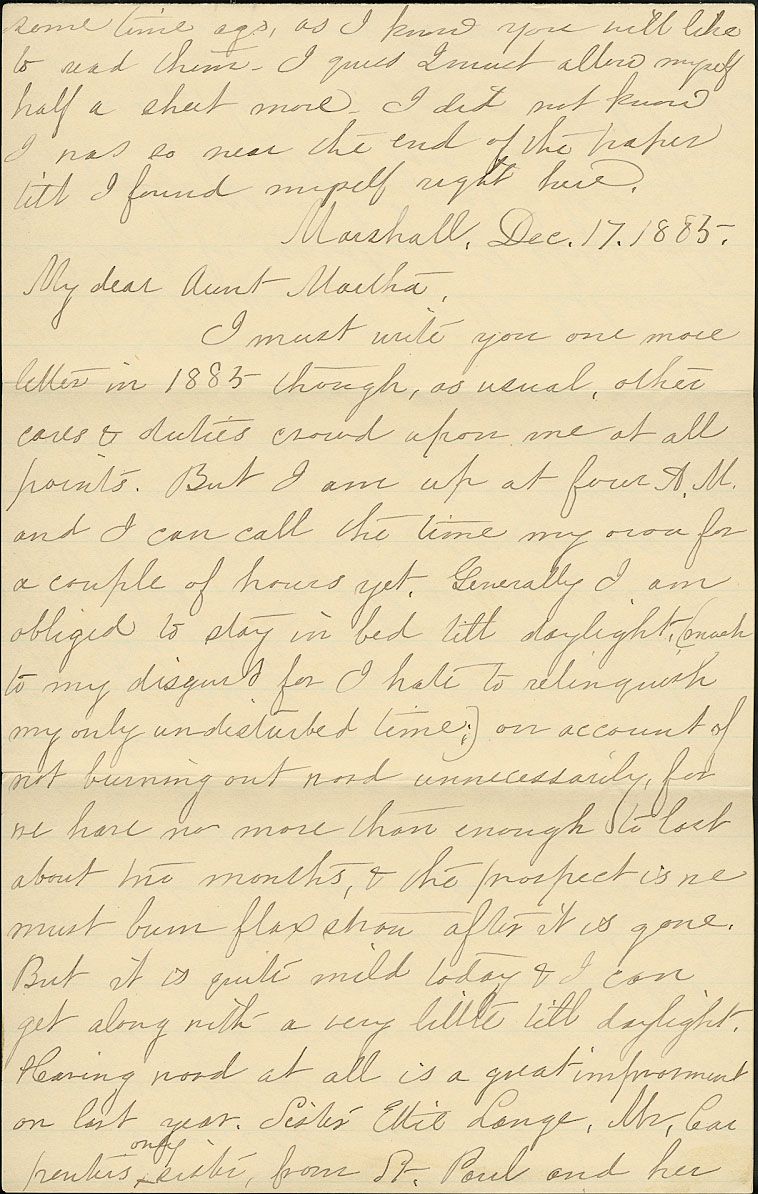 some time ago, as I know you will like
to read them - I guess I must allow myself
half a sheet more - I did not know
I was so near the end of the paper
till I found myself right here.
Marshall, Dec. 17. 1885.
My dear Aunt Martha,
I must write you one more
letter in 1885 though, as usual, other
cares & duties crowd upon me at all
points. But I am up at four A. M.
and I can call the time my own for
a couple of hours yet. Generally I am
obliged to stay in bed till daylight, (much
to my disgust for I hate to relinquish
my only undisturbed time;) on account of
not burning out wood unnecessarily, for
we have no more than enough to last
about two months, & the prospect is we
must burn flax straw after it is gone.
But it is quite mild today & I can
get along with a very little till daylight.
Having wood at all is a great improvment
on last year. Sister Ettie Lange, Mr, Car
penters only sister, from St. Paul and her